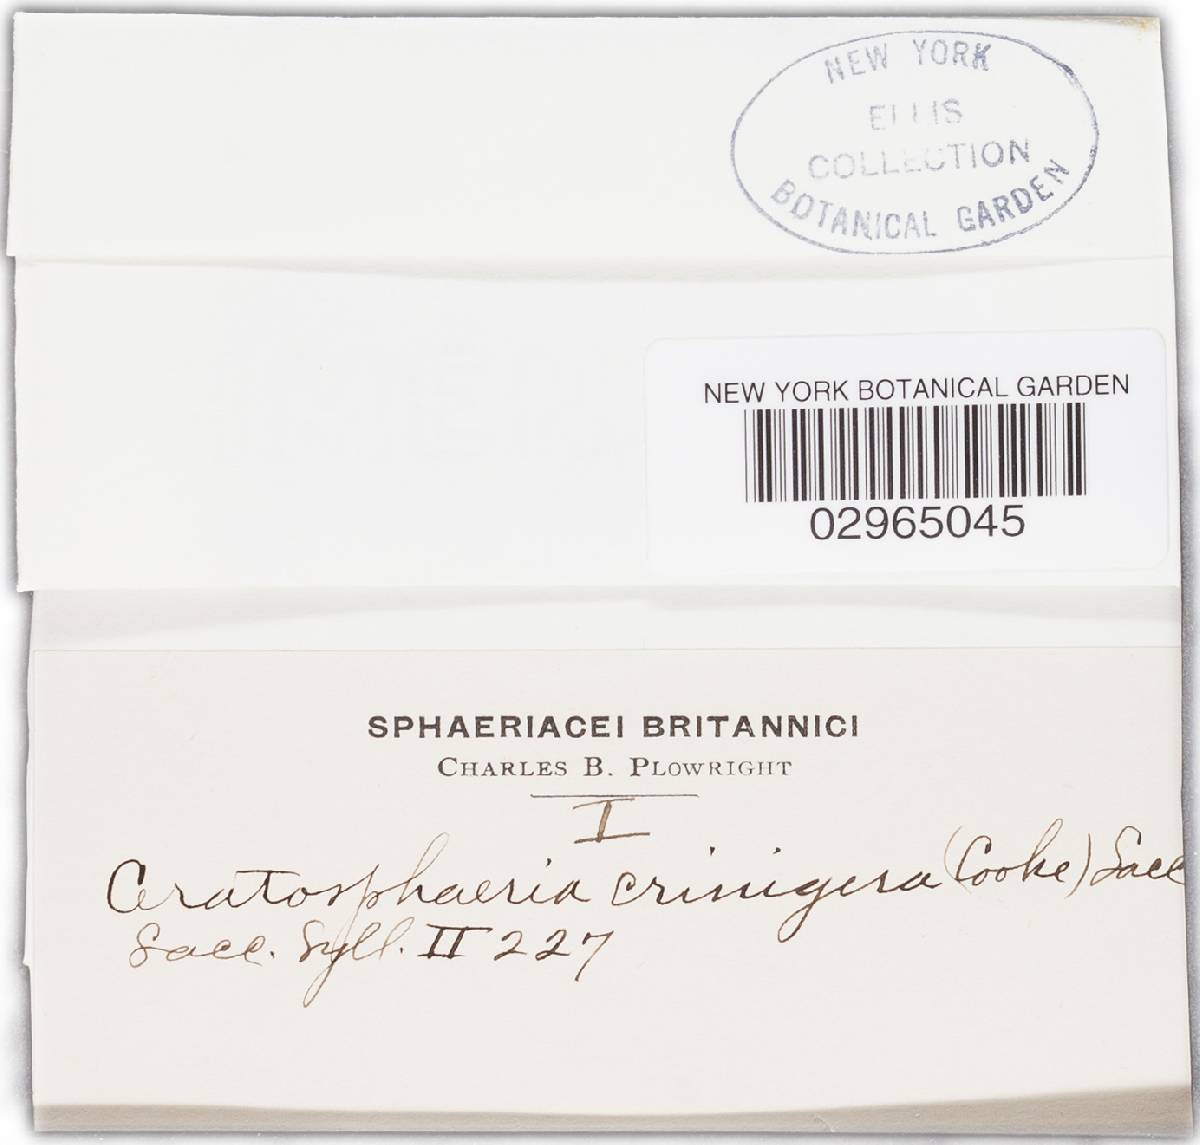 NEW YORK
ELLIS
COLLECTION
BOTANICAL GARDEN
NEW YORK BOTANICAL GARDEN
02965045
SPHAERIACEI BRITANNICI
CHARLES B. PLOWRIGHT
I
Ceratosphaeria crinigera (Cooke) Sacc
Sacc. Syll. II 227